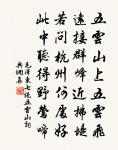 五雲山上五雲飛
遠接群峰近拂堤
若問杭州何處好
此中聽得野鶯啼
毛澤東七絕五雲山詞